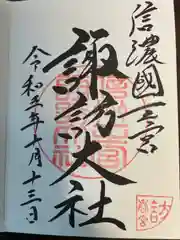 信濃國一之宮
諏訪大社
令和五年十月十三日